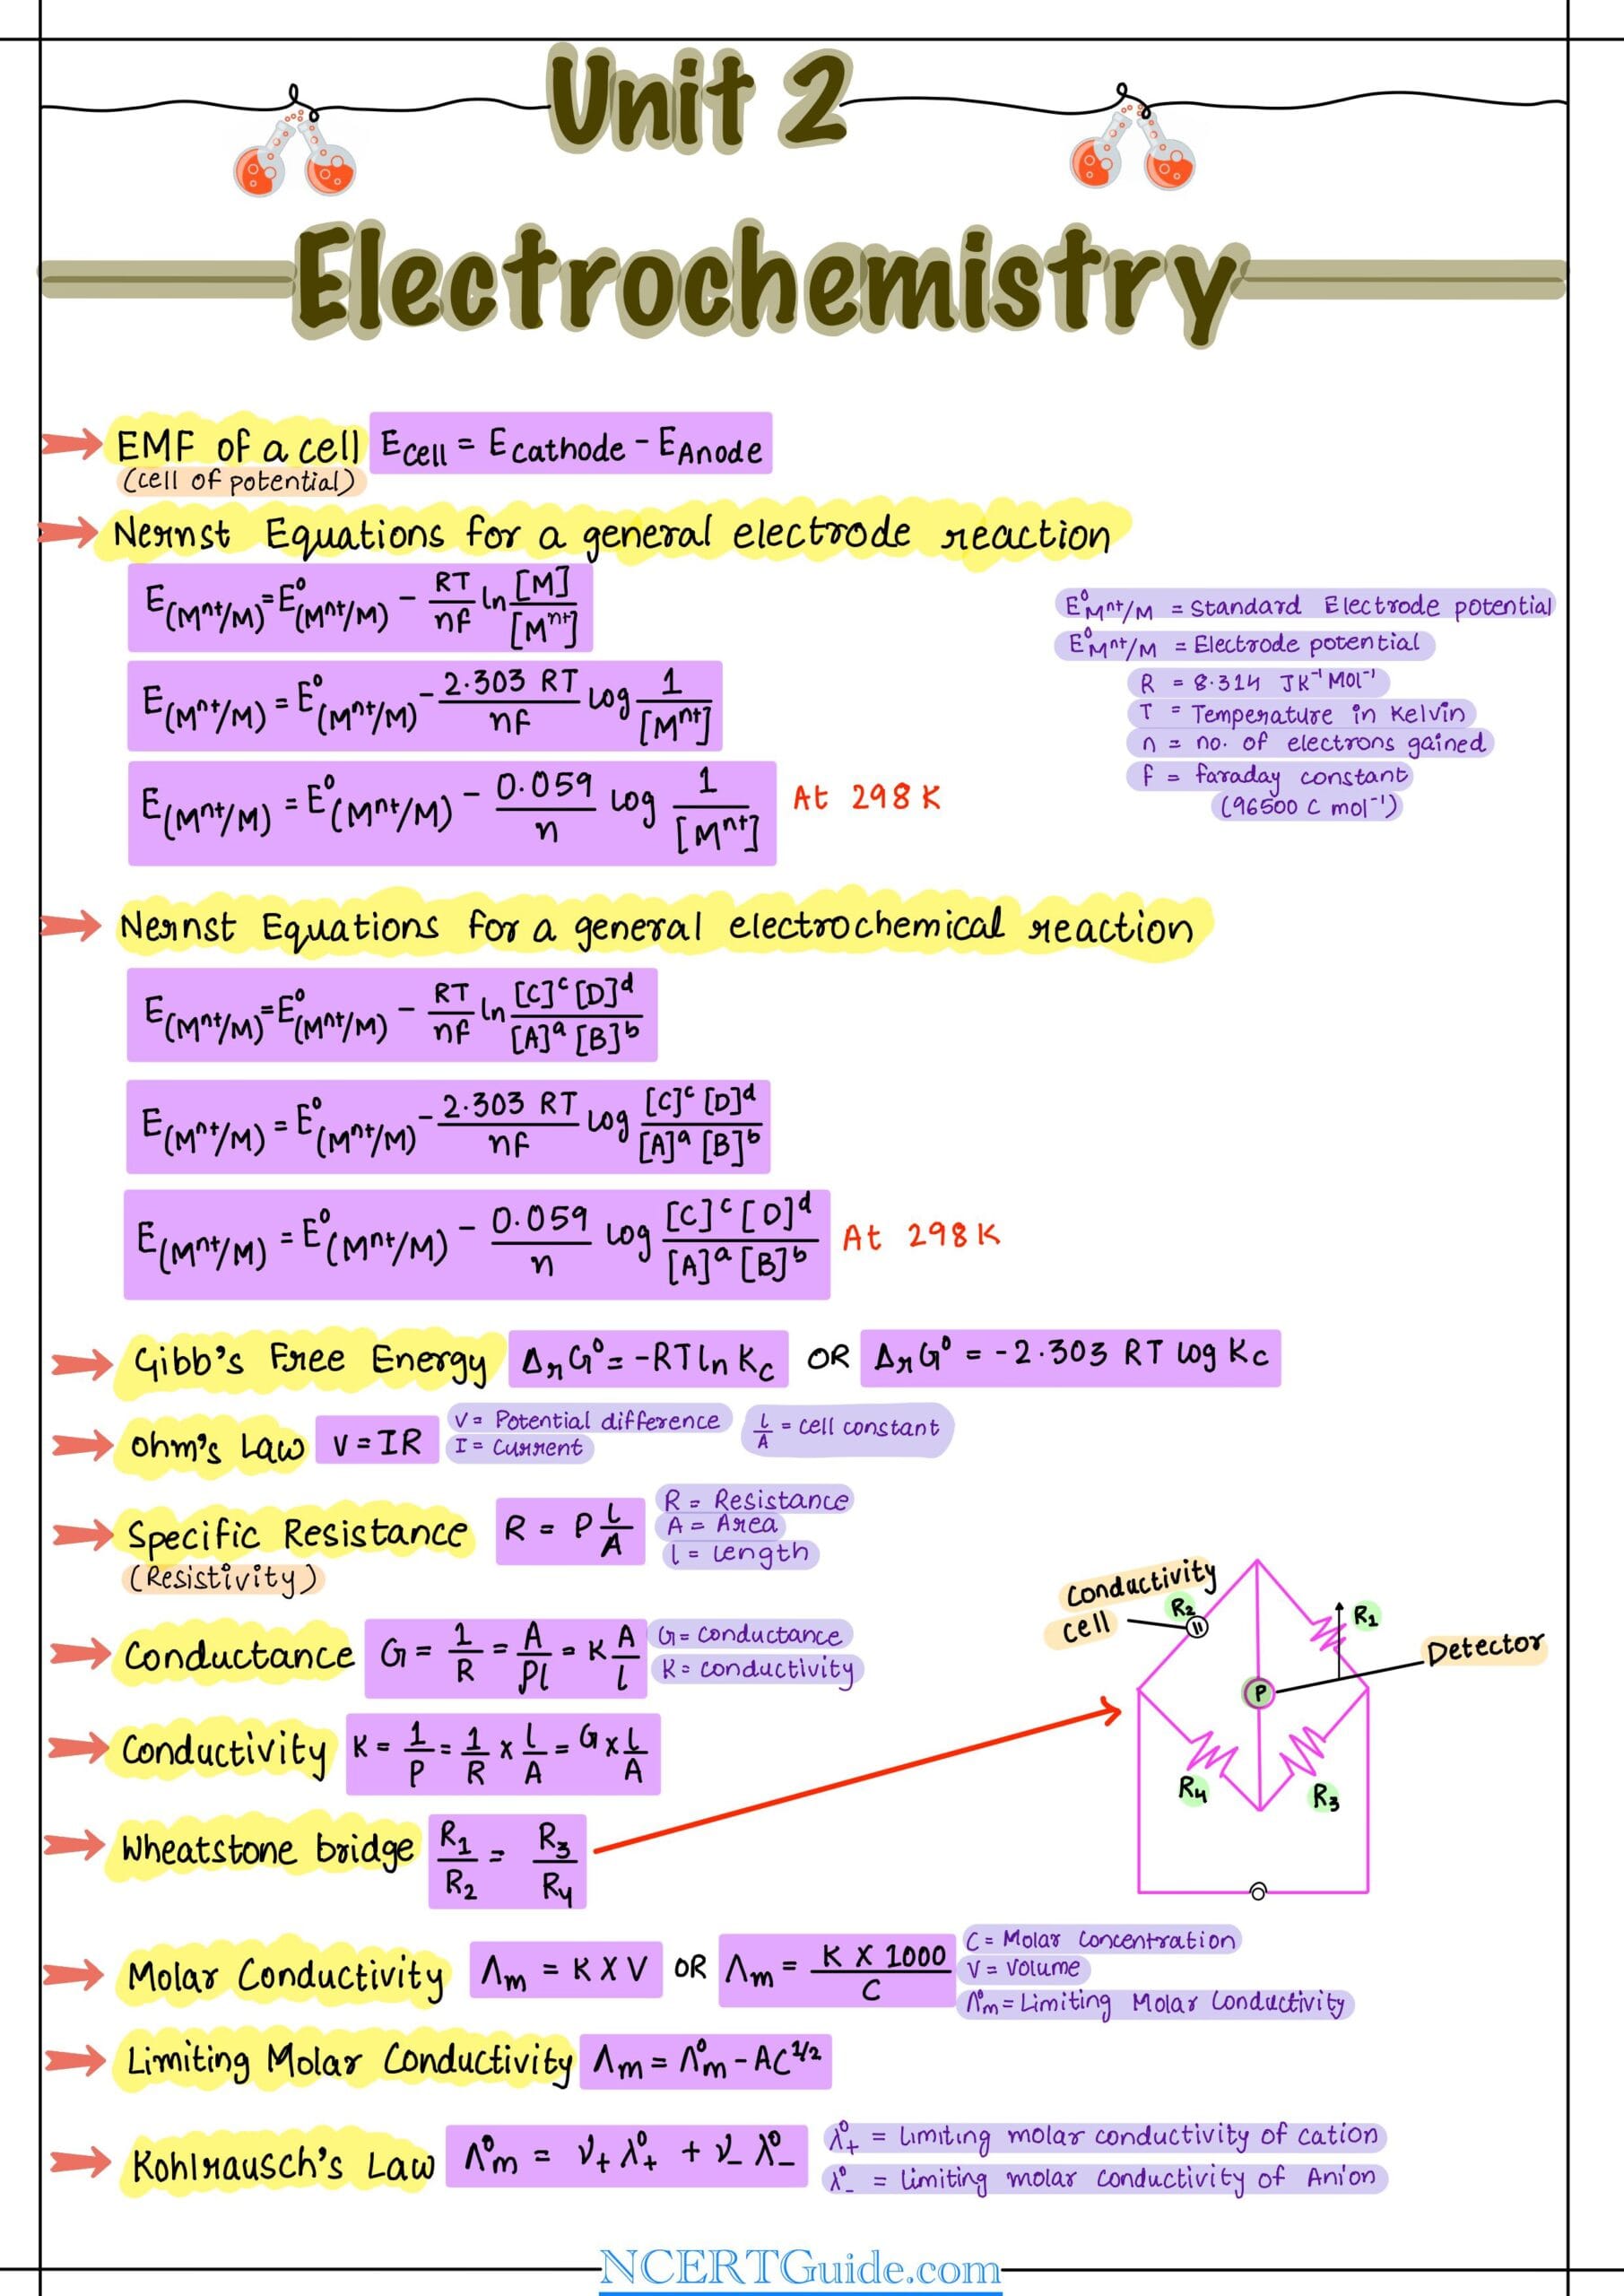 Unit 2
Electrochemistry
EMF of a cell E_Cell = E_Cathode - E_Anode
(cell of potential)
Nernst Equations for a general electrode reaction
E_(Mⁿ⁺/M) = E⁰_(Mⁿ⁺/M) - RT/nF ln [M]/[Mⁿ⁺]
E_(Mⁿ⁺/M) = E⁰_(Mⁿ⁺/M) - 2.303 RT/nF log 1/[Mⁿ⁺]
E_(Mⁿ⁺/M) = E⁰_(Mⁿ⁺/M) - 0.059/n log 1/[Mⁿ⁺] At 298 K
E⁰_Mⁿ⁺/M = Standard Electrode potential
E⁰_Mⁿ⁺/M = Electrode potential
R = 8.314 JK⁻¹ Mol⁻¹
T = Temperature in Kelvin
n = no. of electrons gained
F = faraday constant
(96500 C mol⁻¹)
Nernst Equations for a general electrochemical reaction
E_(Mⁿ⁺/M) = E⁰_(Mⁿ⁺/M) - RT/nF ln [C]ᶜ [D]ᵈ/[A]ᵃ [B]ᵇ
E_(Mⁿ⁺/M) = E⁰_(Mⁿ⁺/M) - 2.303 RT/nF log [C]ᶜ [D]ᵈ/[A]ᵃ [B]ᵇ
E_(Mⁿ⁺/M) = E⁰_(Mⁿ⁺/M) - 0.059/n log [C]ᶜ [D]ᵈ/[A]ᵃ [B]ᵇ At 298 K
Gibb's Free Energy ΔrG⁰ = -RT ln Kc OR ΔrG⁰ = -2.303 RT log Kc
Ohm's Law V = IR
V = Potential difference
I = Current
l/A = cell constant
Specific Resistance R = P l/A
(Resistivity)
R = Resistance
A = Area
l = length
Conductance G = 1/R = A/ρl = K A/l
G = conductance
K = conductivity
Conductivity K = 1/P = 1/R × l/A = G × l/A
Wheatstone bridge R₁/R₂ = R₃/R₄
Conductivity
cell
R₂
R₁
Detector
P
R₄
R₃
Molar Conductivity Λm = K X V OR Λm = K X 1000/C
C = Molar Concentration
V = Volume
Λ⁰m = Limiting Molar Conductivity
Limiting Molar Conductivity Λm = Λ⁰m - AC^1/2
Kohlrausch's Law Λ⁰m = ν₊ λ⁰₊ + ν₋ λ⁰₋
λ⁰₊ = Limiting molar conductivity of cation
λ⁰₋ = Limiting molar conductivity of Anion
NCERTGuide.com